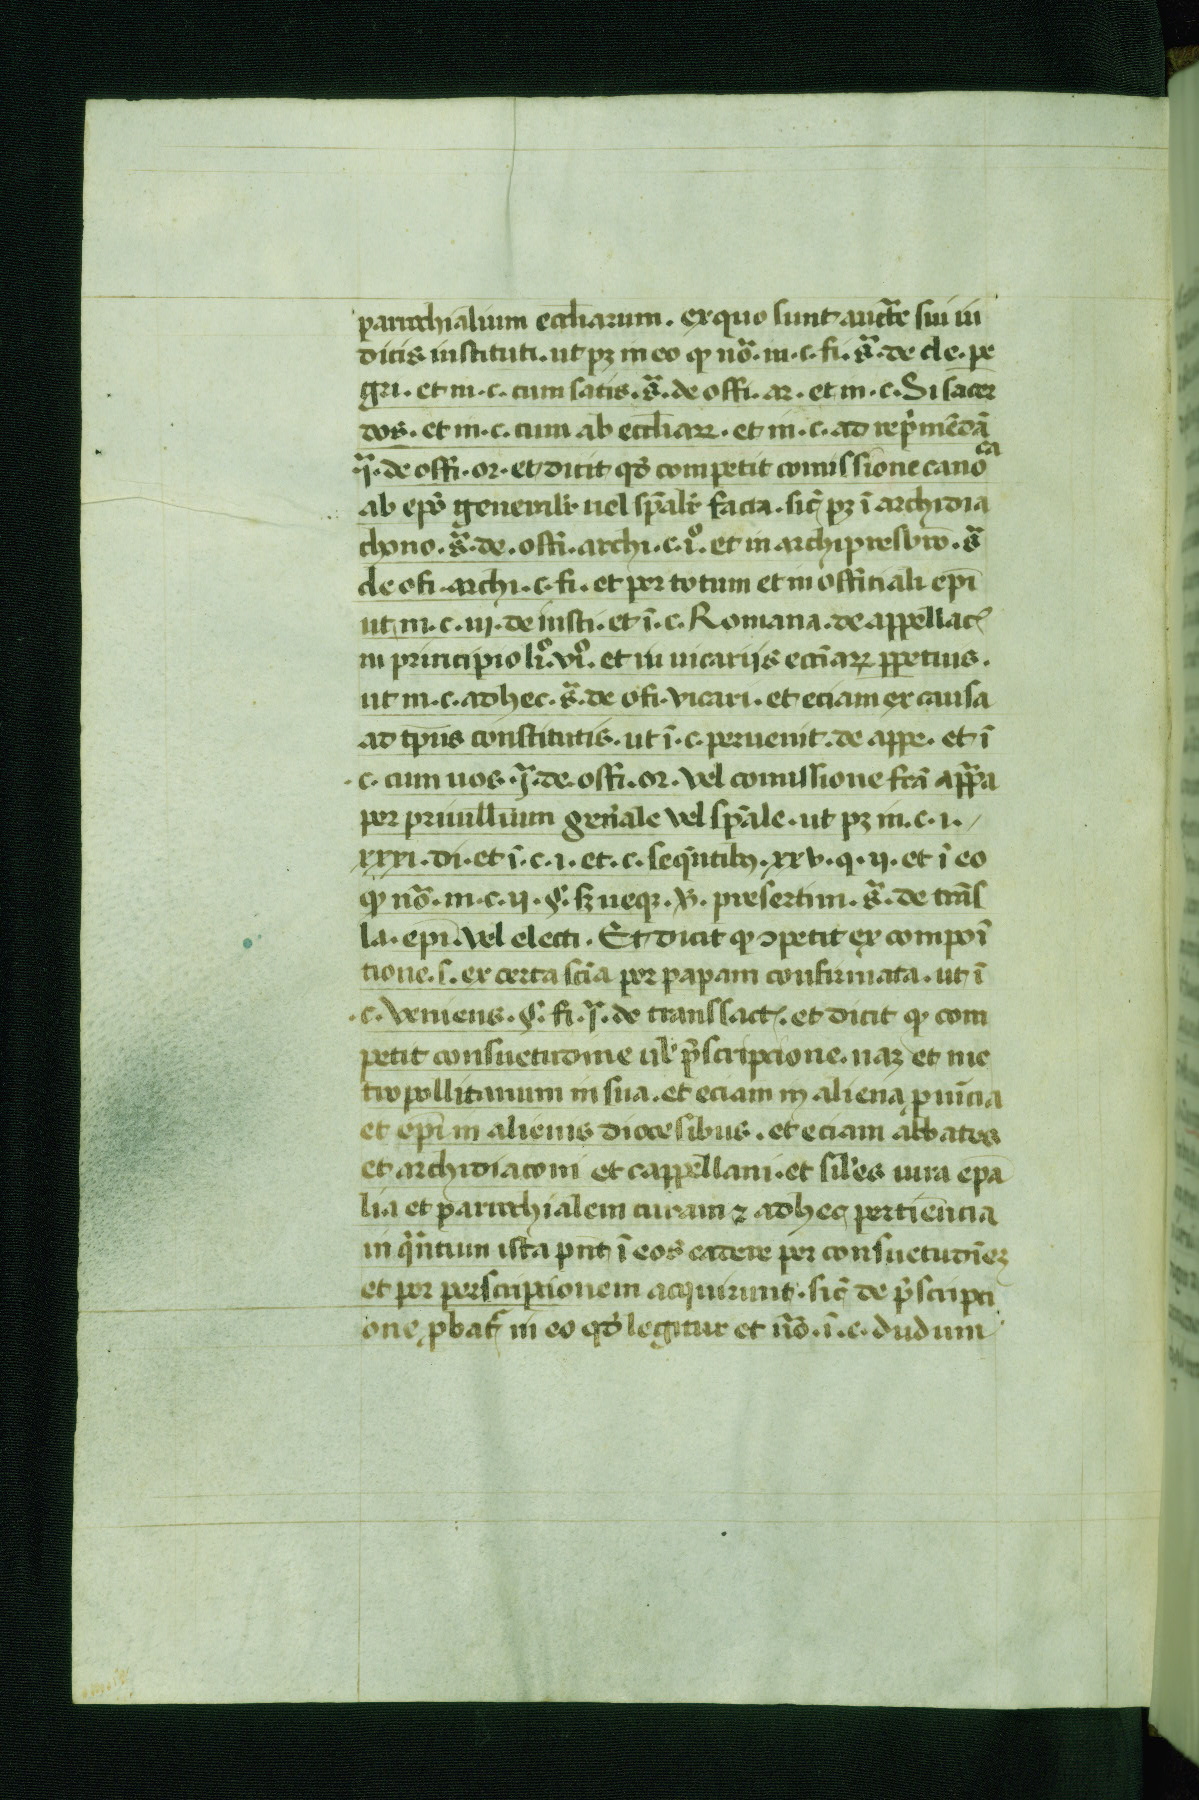 parrochialium eccl̄iarum. ex quo sunt auctẽ sui iu
dicis instituti. ut pꝫ in eo ꝙ nõ. in. c. fi. s̃. de cle. pe
gri. et in. c. cum satis. s̃. de offi. ar. et in. c. Si sacer
dos. et in. c. cum ab eccl̄iaꝝ. et in. c. ad rep̃mẽdã
j̃. de offi. or. et dicit qđ competit comissione canoᶜᵃ
ab ep̃o generalr̃ uel sp̃alr̃ facta. sic̃ pꝫ ĩ archidia
chono. s̃. de. offi. archi. c. i°. et in archipresbr̃o. s̃
de ofi. archi. c. fi. et per totum et in officiali ep̃i
ut in. c. iij. de insti. et ĩ. c. Romana. de appellac̃
in principio li°. vi°. et in uicarijs eccl̃iaꝝ ꝑpetuis.
ut in. c. ad hec. s̃. de ofi. vicari. et eciam ex causa
ad tp̃us constitutis. ut ĩ. c. peruenit. de appe. et ĩ
c. cum uos. j̃. de. offi. or. vel comissione fc̃ã app̃a
per priuillium gen̄ale vel sp̃ale. ut pꝫ in. c. i.
xxxi. di. et ĩ. c. i. et. c. seq̃ntibꝫ. xxv. q. ij. et ĩ eo
ꝙ nõ. in. c. ij. §. sꝫ neqꝫ. v̷. presertim. s̃. de trãs
la. ep̃i. vel electi. Et dicit ꝙ ꝯpetit ex compoĩ
tione. s. ex certa scĩa per papam confirmata. ut ĩ
c. veniens. §. fi. j̃. de translact̃. et dicit ꝙ com
petit consuetudine ul̃ p̃scripcione. naꝫ et me
tropollitanum in sua. et eciam in aliena ꝓuĩcia
et ep̃i in alienis diocesibus. et eciam abbates
et archidiaconi et cappellani. et sil̃es iura ep̃a
lia et parrochialem curam ⁊ ad hec pertiẽncia
in q̃ntum ista pñt ĩ eos cadere per consuetudĩeꝫ
et per perscriptionem acquirunt. sic̃ de p̃scripci
one ꝓbat̃ in eo qđ legitur et nõ. ĩ. c. dudum